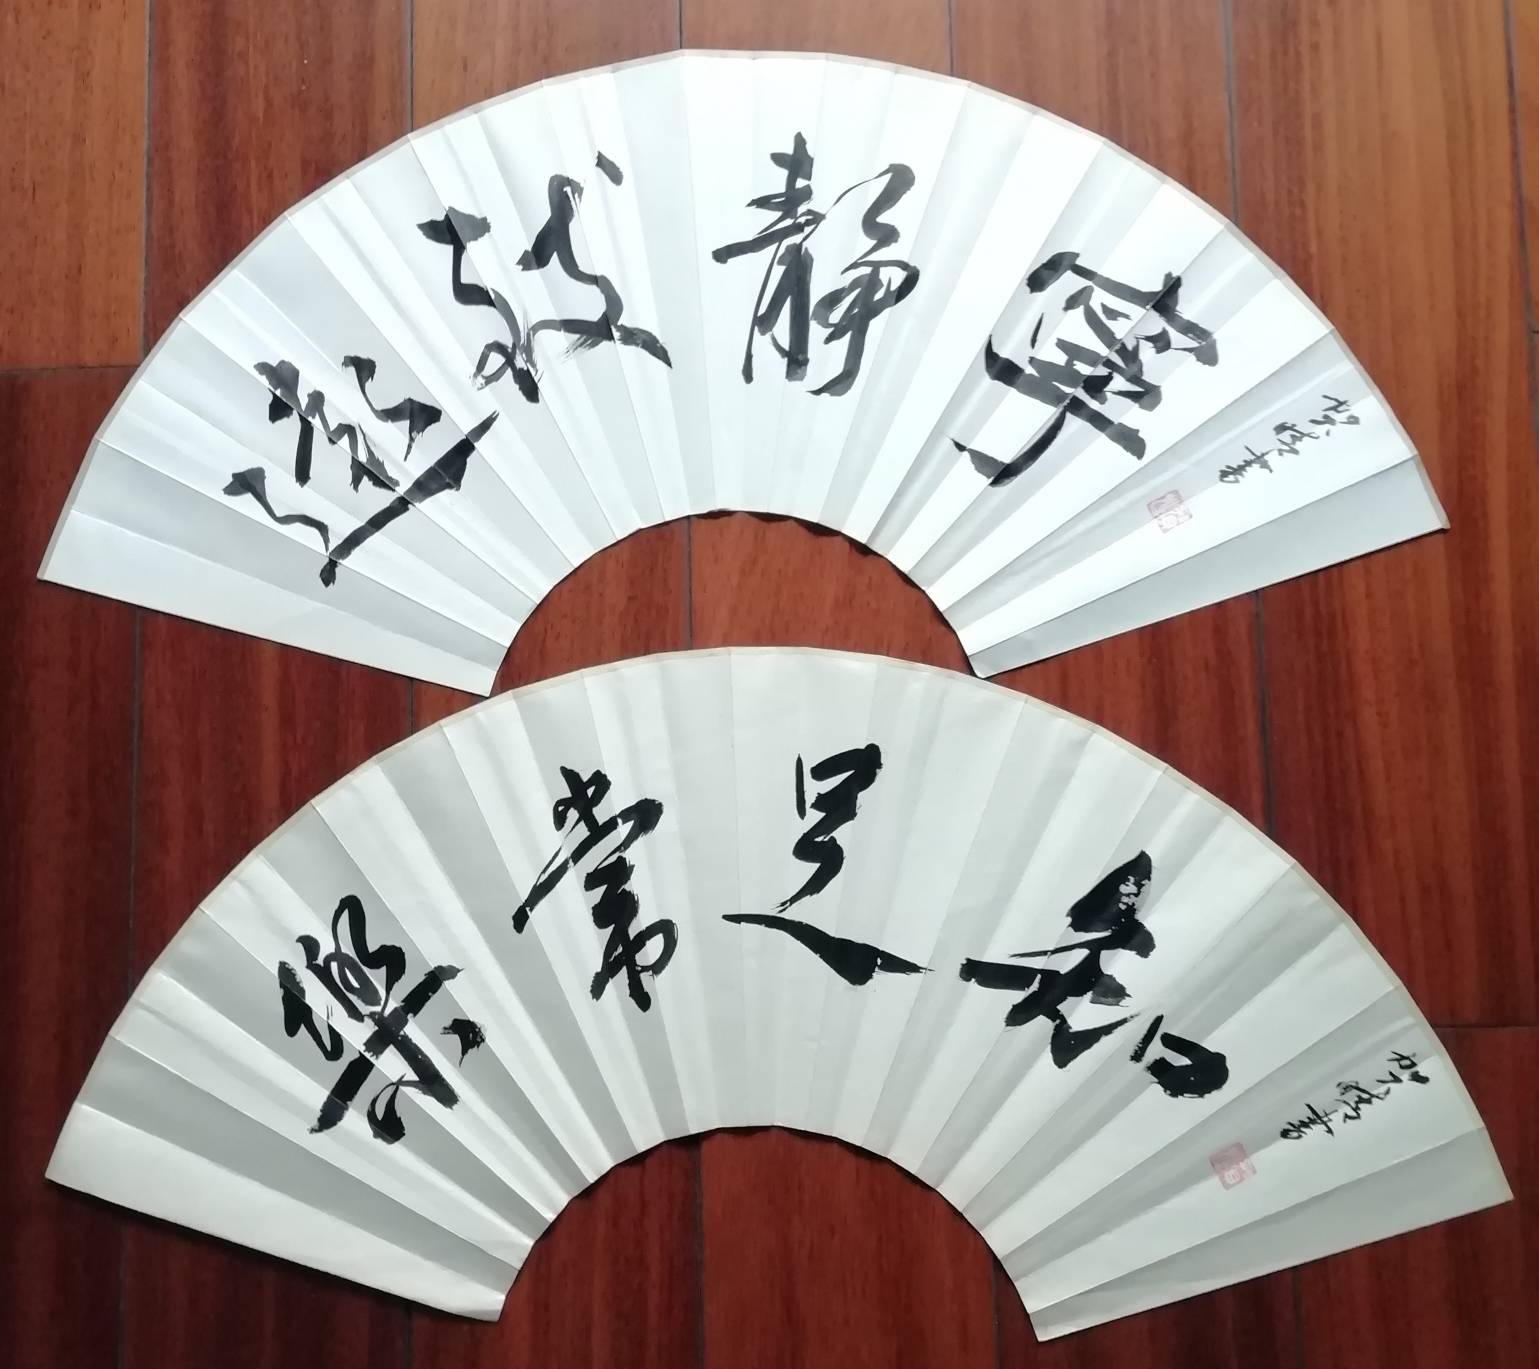 寧靜致遠
知足常樂